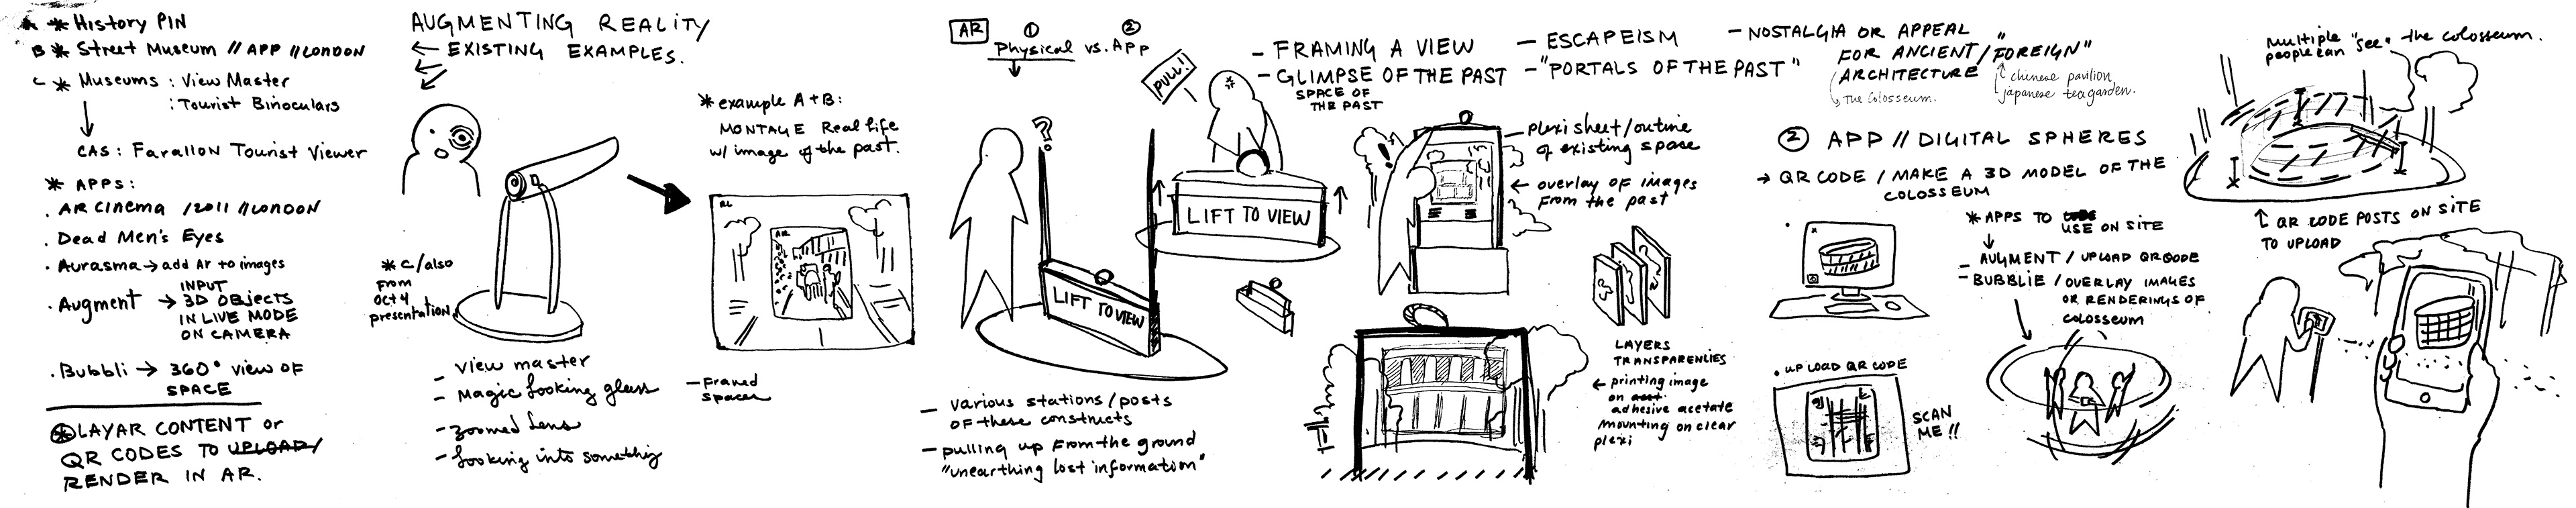 A * History PIN
B * Street Museum // APP // LONDON
C * Museums : View Master
: Tourist Binoculars
CAS : Farallon Tourist Viewer
* APPS :
. AR CINEMA / 2011 // LONDON
. Dead Men's Eyes
. Aurasma → add Ar to images
. Augment → INPUT
3D OBJECTS
IN LIVE MODE
ON CAMERA
. Bubbli → 360° view OF
SPACE
* LAYAR CONTENT or
QR CODES TO UPLOAD/
RENDER IN AR.
AUGMENTING REALITY
← EXISTING EXAMPLES.
* C/also
from
Oct 4
presentation.
- view master
- Magic looking glass
- zoomed lens
- looking into something
* example A + B:
MONTAGE Real life
w/ image of the past.
AR
- Framed
spaces
AR
① Physical vs. ② App
?
LIFT TO VIEW
- various stations / posts
OF these constructs
- pulling up from the ground
"unearthing lost information"
PULL!
LIFT TO VIEW
- FRAMING A VIEW
- GLIMPSE OF THE PAST
SPACE OF
THE PAST
- ESCAPEISM
- "PORTALS OF THE PAST"
- NOSTALGIA OR APPEAL
FOR ANCIENT / "FOREIGN"
ARCHITECTURE
The Colosseum.
chinese pavilion,
japanese tea garden.
plexi sheet / outline
of existing space
← overlay of images
from the past
LAYERS
TRANSPARENCIES
← printing image
on
adhesive acetate
mounting on clear
plexi
② APP // DIGITAL SPHERES
→ QR CODE / MAKE A 3D MODEL OF THE
COLOSSEUM
* APPS TO
USE ON SITE
- AUGMENT / UPLOAD QR CODE
- BUBBLIE / OVERLAY IMAGES
OR RENDERINGS OF
COLOSSEUM
. UPLOAD QR CODE
SCAN
ME !!
Multiple
people can "see" the colosseum.
↑ QR CODE POSTS ON SITE
TO UPLOAD